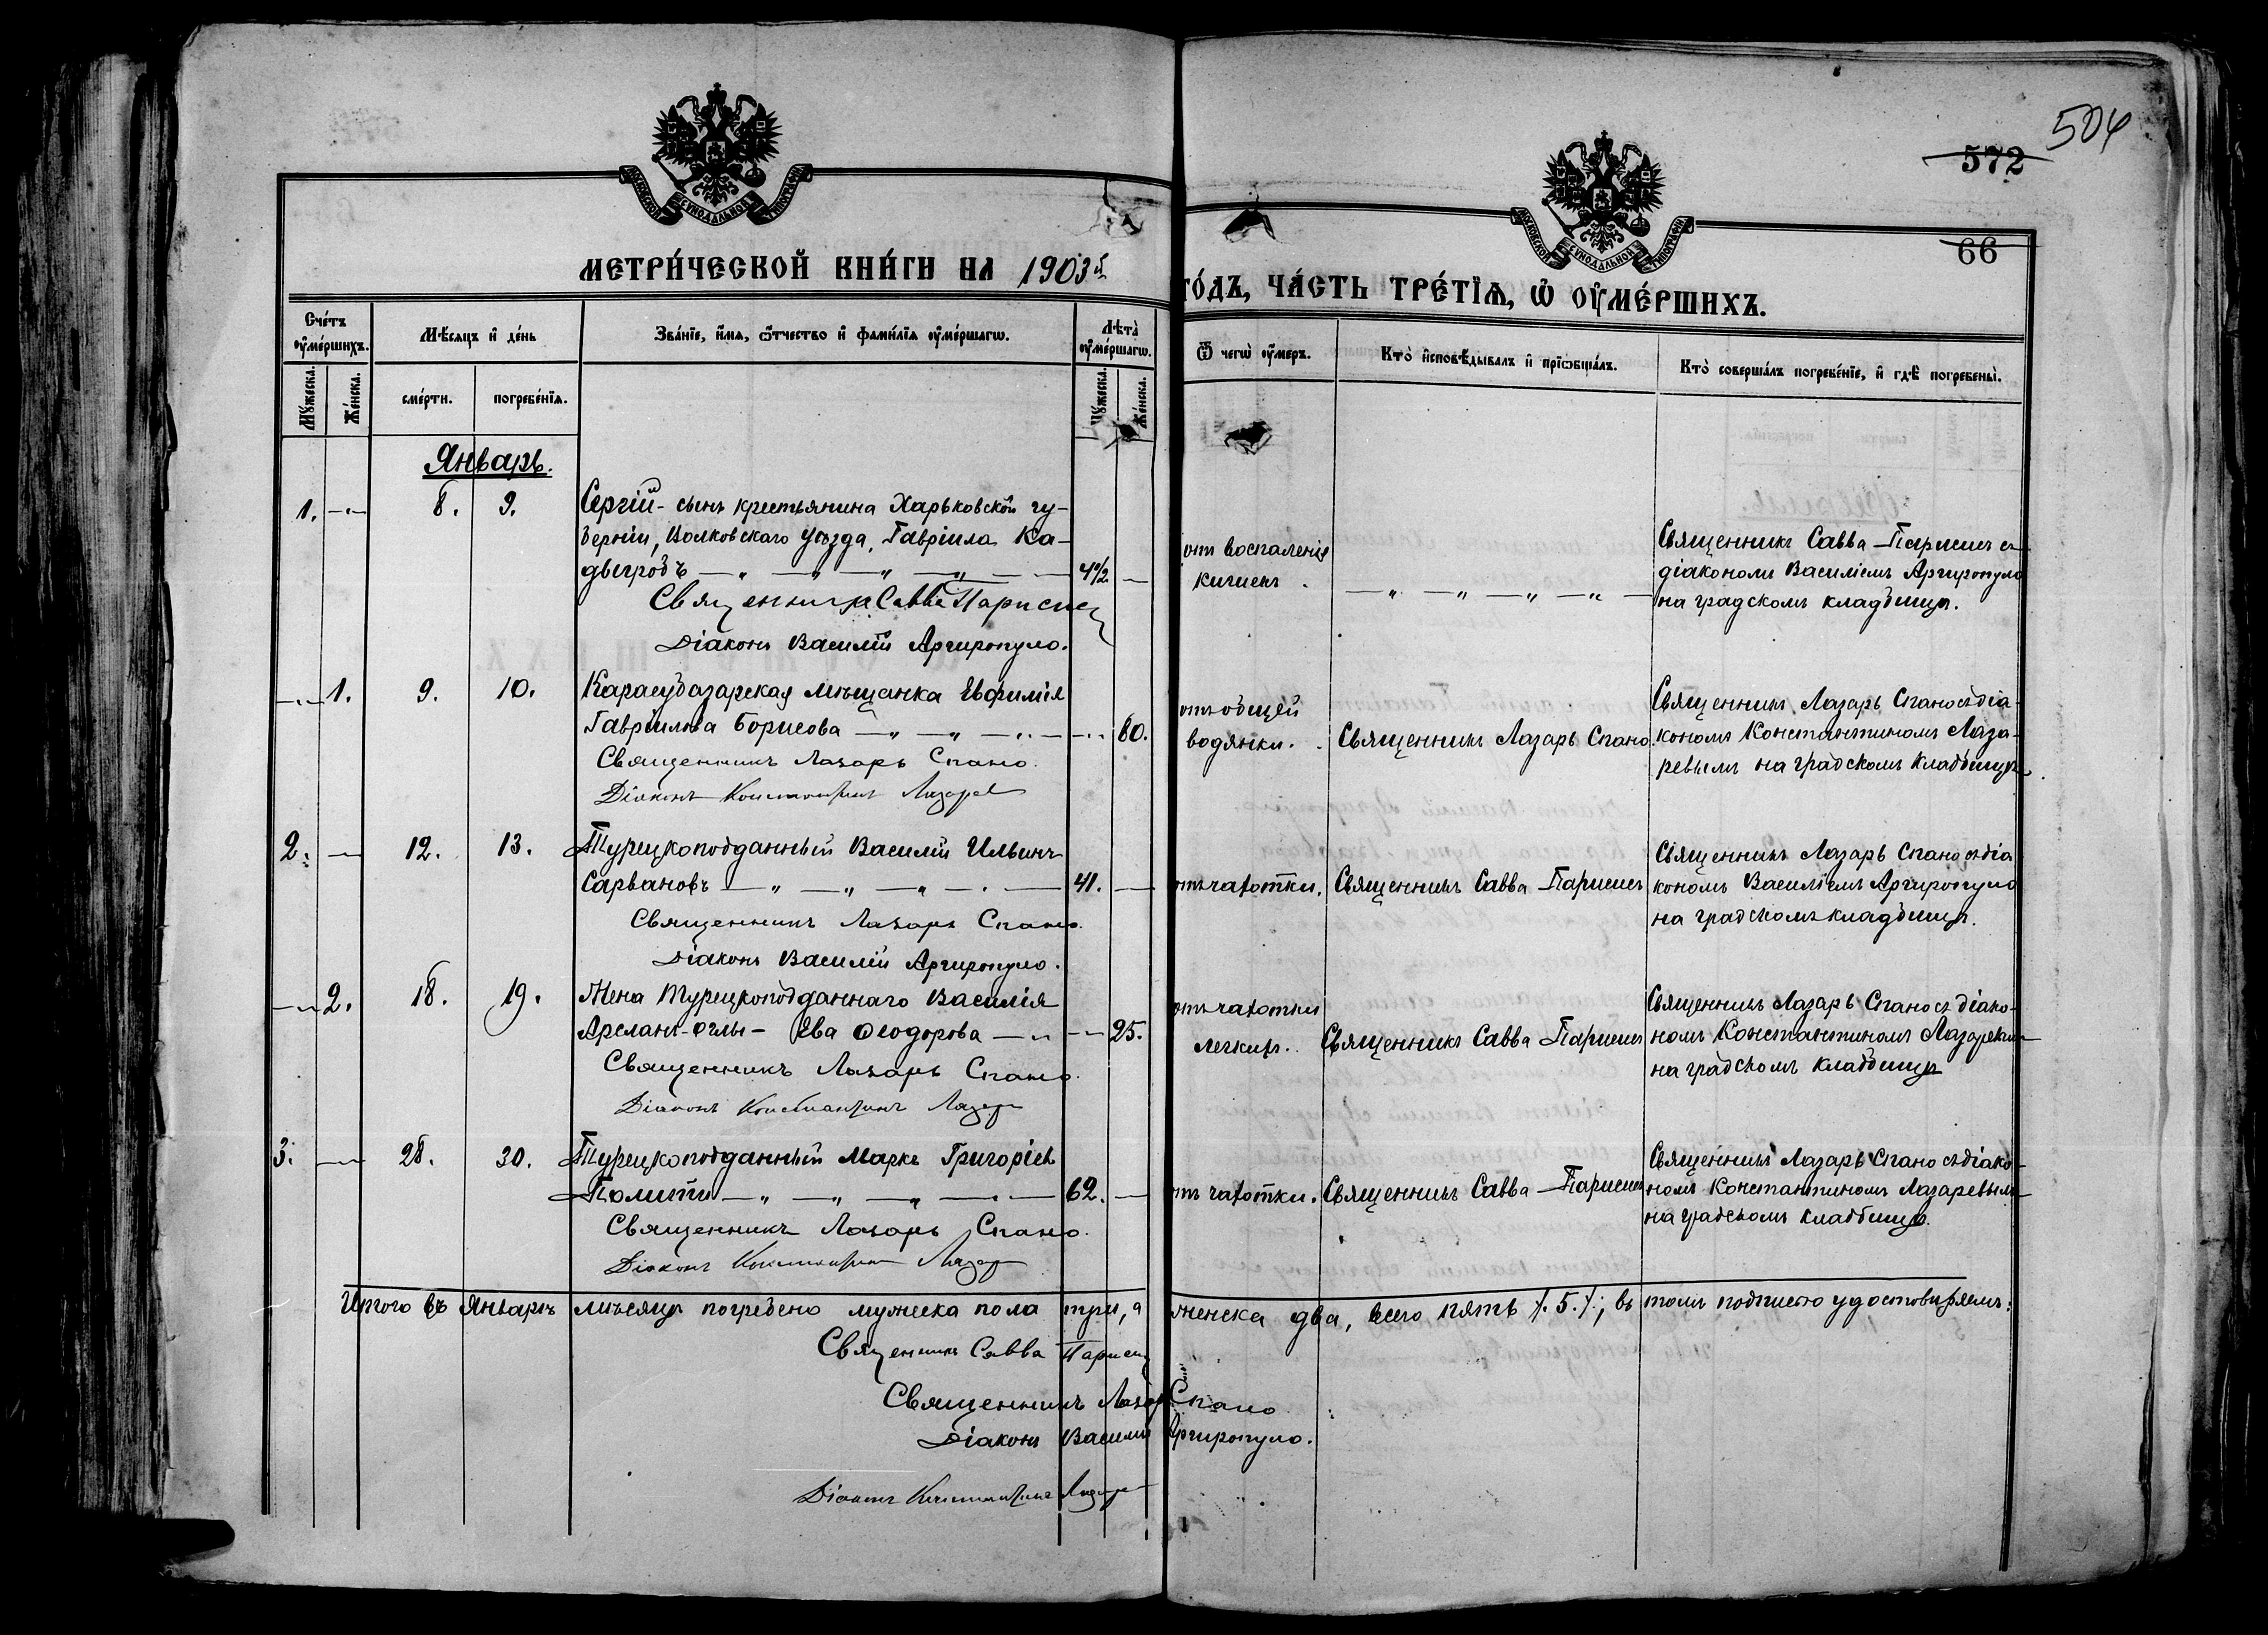 504
572
66
МОСКОВСКОЙ СѴНОДАЛЬНОЙ ТИПОГРАФІИ
МОСКОВСКОЙ СѴНОДАЛЬНОЙ ТИПОГРАФІИ
МЕТРИ́ЧЕСКОЙ КНИ́ГИ НА 1903й ГО́ДЪ, ЧА́СТЬ ТРЕ́ТІѦ, Ѡ҆ ОУ҆МЕ́РШИХЪ.
Сче́тъ оу҆ме́ршихъ.
Мꙋ́жеска.
Же́нска.
Мѣ́сяцъ и҆ де́нь
сме́рти.
погребе́нїѧ.
Зва́нїе, и҆́мѧ, ѻ҆́тчество и҆ фами́лїѧ оу҆ме́ршагѡ.
Лѣ̀та оу҆ме́ршагѡ.
Мꙋ́жеска.
Же́нска.
Ѿ чегѡ̀ оу҆́меръ.
Кто̀ и҆сповѣ́дывалъ и҆ прїѡбща́лъ.
Кто̀ соверша́лъ погребе́нїе, и҆ гдѣ̀ погребены̀.
Январь.
1. — 8. 9. Сергій - сынъ крестьянина Харьковской гу-
берніи, Волковскаго уѣзда, Гавріила Ка-
двигробъ 4 1/2 —
Священникъ Савва Парисисъ
Діаконъ Василій Аргиропуло.
отъ воспаленія
кишекъ.
Священникъ Савва Парисисъ съ
діакономъ Василіемъ Аргиропуло
на градскомъ кладбищѣ.
— 1. 9. 10. Карасубазарская мѣщанка Евфимія
Гавріилова Борисова — 80.
Священникъ Лазарь Спано.
Діаконъ Константинъ Лазарев
отъ общей
водянки.
Священникъ Лазарь Спано.
Священникъ Лазарь Спано съ діа-
кономъ Константиномъ Лаза-
ревымъ на градскомъ кладбищѣ
2. — 12. 13. Турецкоподданный Василій Ильинъ
Сарвановъ 41. —
Священникъ Лазарь Спано.
Діаконъ Василій Аргиропуло.
отъ чахотки.
Священникъ Савва Парисисъ
Священникъ Лазарь Спано съ діа
кономъ Василіемъ Аргиропуло
на градскомъ кладбищѣ.
— 2. 18. 19. Жена Турецкоподданнаго Василія
Арсланъ-оглы - Ева Ѳеодорова — 25.
Священникъ Лазарь Спано
Діаконъ Константинъ Лазарев
отъ чахотки
легкихъ.
Священникъ Савва Парисисъ
Священникъ Лазарь Спано съ діако-
номъ Константиномъ Лазаревым
на градскомъ кладбищѣ
3. — 28. 30. Турецкоподданный Маркъ Григоріевъ
Полити 62. —
Священникъ Лазарь Спано.
Діаконъ Константинъ Лазарев
отъ чахотки.
Священникъ Савва Парисисъ
Священникъ Лазарь Спано съ діако-
номъ Константиномъ Лазаревымъ
на градскомъ кладбищѣ.
Итого въ Январѣ мѣсяцѣ погребено мужеска пола три, а женска два, всего пять /.5./; въ томъ подписью удостовѣряемъ:
Священникъ Савва Парисисъ
Священникъ Лазарь Спано
Діаконъ Василій Аргиропуло.
Діаконъ Константинъ Лазарев